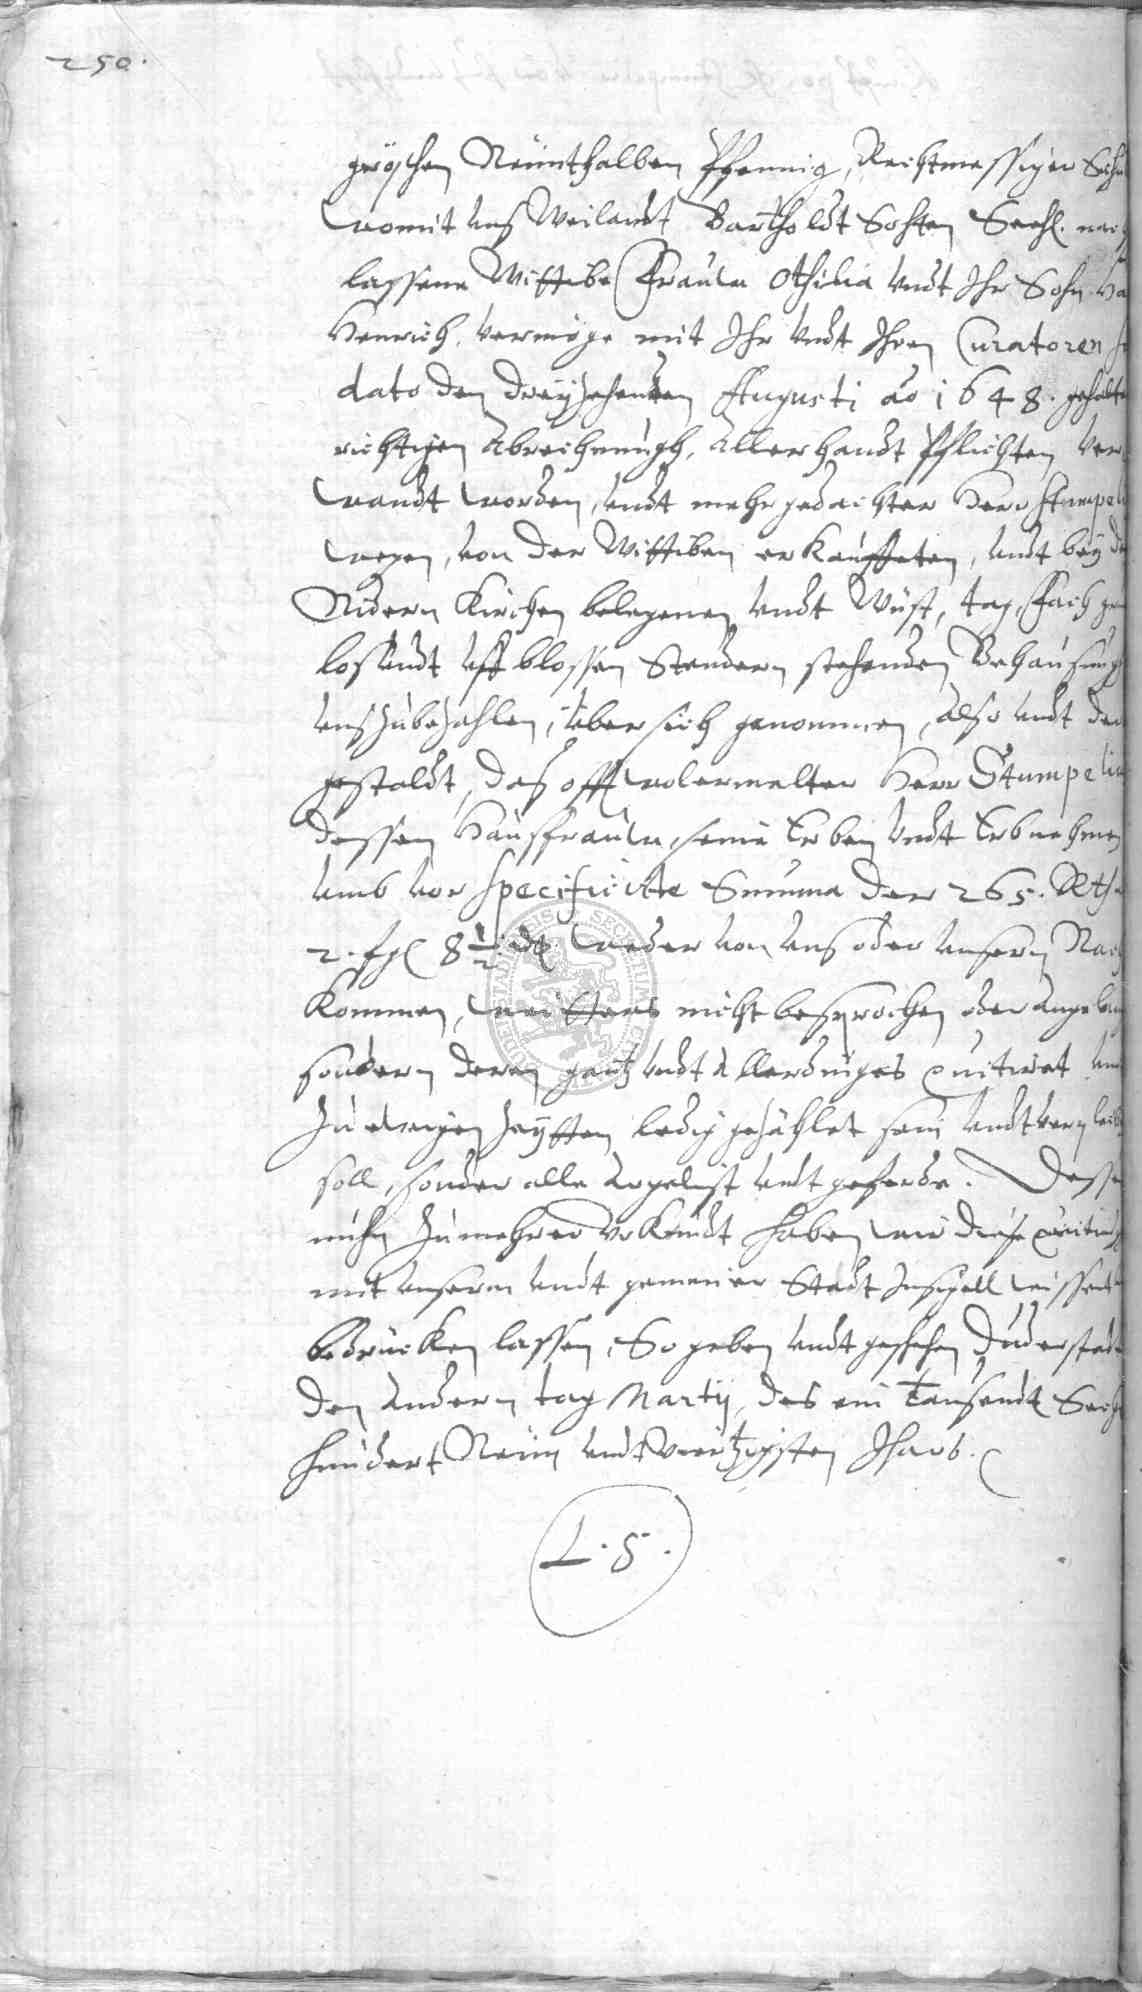 250.
gröschen Neünthalben Pfennig, Rechtmessiger
womit uns Weilandt Bartholdt Sosten Seehl.
lassene Wittibe Frauw Othilia undt Ihr Sohn
Henrich, vermöge mit Ihr undt Ihren Curatoren
dato den dreyzehenden Augusti ao 1648. gehalte
richtigen Abrechnungh, Allerhandt Pflichten ver
wandt worden, undt mehrgedachter Herr Stumpel
wegen, von der Wittiben erkaufften, undt bey
Nidern Kirchen belegenen undt Wüst, tag, Fach
los undt uff blossen Stendern stehenden Behausung
uns zubezahlen, über sich genommen, also undt der
gestaldt, das offt wolermelter Herr Stumpeli
dessen Hausfrauw, seine Erben undt Erbnehmen
umb vor specificirte Summa der 265. Rth
2. sgl 8½ d. weder von uns oder unsern Nach
Kommen, weitters nicht besprochen oder
sondern deren gantz undt Allerdinges quitiret
Zu ewigen Zeytten ledig gezahlet sein undt
soll, sonder alle Argelist undt geferde. Dessen
nuhn zu mehrer Urkundt haben wir diese quitung
mit unserm undt gemeiner Stadt Insigell wissent
bedrücken lassen, So geben undt geschehen Duderstadt
den Andern tag Martij, des ein Tausendt Sechs
hundert Neün undt viertzigsten Jhars.
L. S.